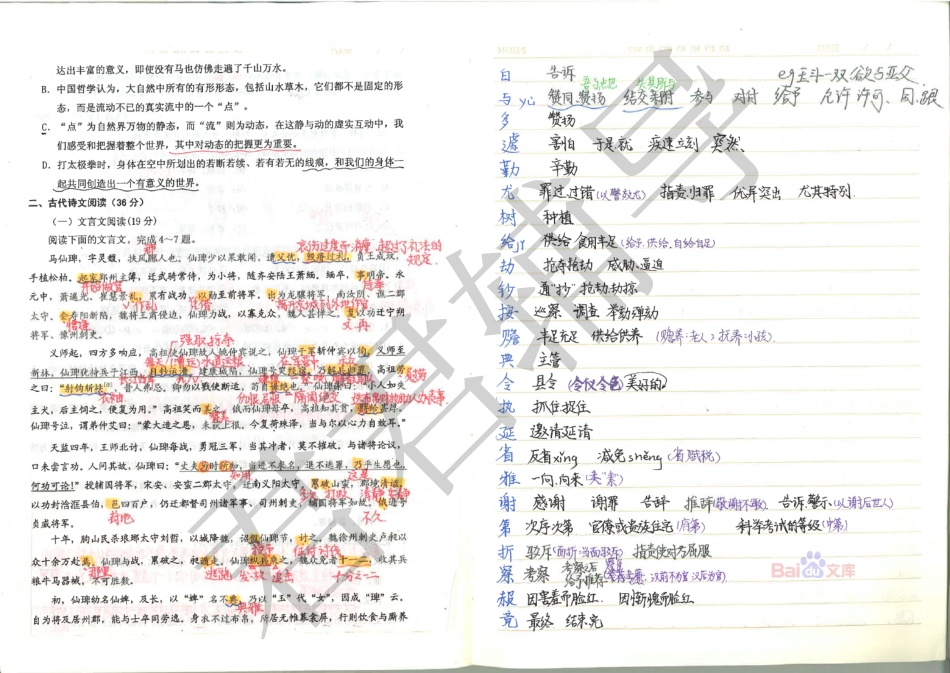 达出丰富的意义，即使没有马也仿佛走遍了千山万水。
B．中国哲学认为，大自然中所有的有形形态，包括山水草木，它们都不是固定的形
态，而是流动不已的真实流中的一个“点”。
C．“点”为自然界万物的静态，而“流”则为动态，在这静与动的虚实互动中，我
们感受和把握着整个世界，其中对动态的把握更为重要。
D．打太极拳时，身体在空中所划出的若断若续、若有若无的线痕，和我们的身体一
起共同创造出一个有意义的世界。
二、古代诗文阅读（36分）
（一）文言文阅读(19分)
阅读下面的文言文，完成4～7题。
哀伤过度而消瘦 超过了礼法的
规定
马仙琕，字灵馥，扶风郿人也。仙琕少以果敢闻，遭父忧，毁瘠过礼，负土成坟，
手植松柏。起家郢州主簿，迁武骑常侍，为小将，随齐安陆王萧缅。缅卒，事明帝。永
元中，萧遥光、崔慧景乱，累有战功，以勋至前将军。出为龙骧将军，南汝阴、谯二郡
太守。会寿阳新陷，魏将王肃侵边，仙琕力战，以寡克众，魏人甚惮之。复以功迁宁朔
将军、豫州刺史。
强取 掠夺
义师起，四方多响应，高祖使仙琕故人姚仲宾说之，仙琕于军斩仲宾以徇。义师至
新林，仙琕犹持兵于江西，日钞运漕，建康城陷，仙琕号哭经宿，乃解兵归罪。高祖劳
之曰：“射钩斩祛，昔人弗忌。卿勿以戮使断运，苟自嫌绝也。”仙琕谢曰：“小人如失
主犬，后主饲之，便复为用。”高祖笑而美之。俄而仙琕母卒，高祖知其贫，赙给甚厚。
仙琕号泣，谓弟仲艾曰：“蒙大造之恩，未获上报。今复荷殊泽，当与尔以心力自效耳。”
天监四年，王师北讨，仙琕每战，勇冠三军，当其冲者，莫不摧破。与诸将论议，
口未尝言功。人问其故，仙琕曰：“丈夫为时所知，当进不求名，退不逃罪，乃平生愿也，
何功可论！”授辅国将军、宋安、安蛮二郡太守，迁南义阳太守。累破山蛮，郡境清谧。
以功封浛洭县伯，邑四百户，仍迁都督司州诸军事、司州刺史，辅国将军如故。俄进号
贞威将军。
十年，朐山民杀琅邪太守刘晣，以城降魏，诏假仙琕节，讨之。魏徐州刺史卢昶以
众十余万赴焉，仙琕与战，累破之，昶遁走。仙琕纵兵乘之，魏众免者十一二，收其兵
粮牛马器械，不可胜数。
逃跑 发动 追击 十分之一二
初，仙琕幼名仙婢，及长，以“婢”名不典，乃以“玉”代“女”，因成“琕”云。
自为将及居州郡，能与士卒同劳逸。身衣不过布帛，所居无帷幕衾屏，行则饮食与厮养
白 告诉
与yù 赞同、赞扬 结交亲附 参与 对付 给予 允许许可、同、跟
多 赞扬
遽 害怕 于是就 疾速立刻 突然、
勤 辛勤
尤 罪过过错(以警效尤) 指责归罪 优异突出 尤其特别.
树 种植
给jǐ 供给 食用丰足(给予.供给.自给自足)
劫 抢夺抢劫 威胁.逼迫
钞 通“抄”抢劫劫掠
按 巡察 调查 举动弹劾
赡 丰足充足 供给供养 (赡养:老人；抚养:小孩)
典 主管
令 县令 (令仪令色)美好的。
执 抓住捉住
延 邀请延请
省 反省xǐng 减免shěng (省赋税)
雅 一向.向来(类“素”)
谢 感谢 谢罪 告辞 推辞(敬谢不敏) 告诉.警示(以谢后世人)
第 次序次第 官僚或贵族住宅(府第) 科学考试的等级(中第)
折 驳斥(面折:当面驳斥) 指责使对方屈服
察 考察 考察之后
赧 因害羞而脸红. 因惭愧而脸红
竟 最终 结束完
Baidu文库